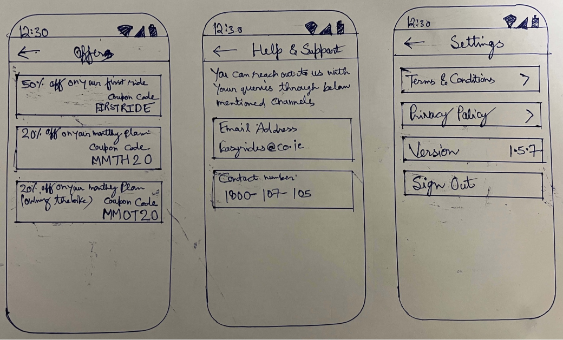 12:30
Offers
50% off on your first ride
Coupon Code
FIRSTRIDE
20% off on your monthly Plan
Coupon Code
MMTH20
20% off on your monthly Plan
(owning the bike) Coupon Code
MMOT20
12:30
Help & Support
You can reach out to us with
Your queries through below
mentioned channels
Email Address
@co.ie
Contact number
1800-107-105
12:30
Settings
Terms & Conditions >
Privacy Policy >
Version 1.5.7
Sign Out